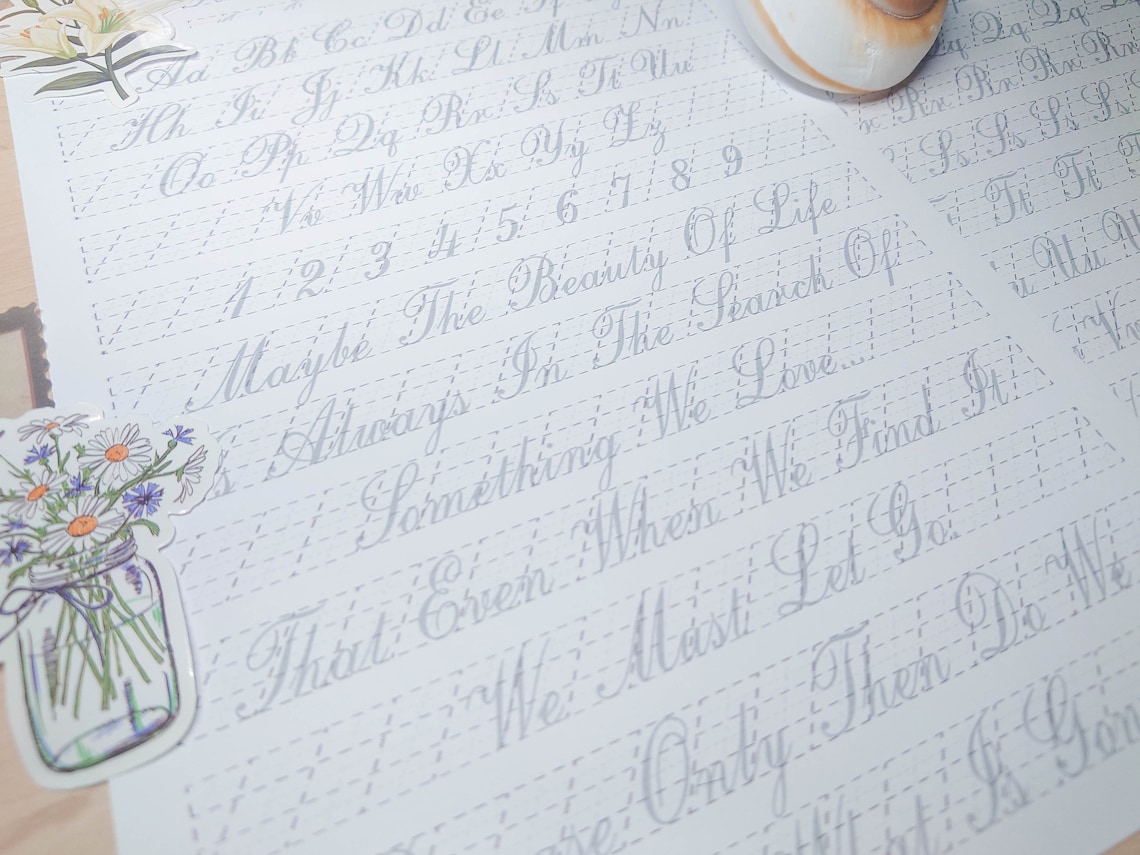 Aa Bb Cc Dd Ee
Hh Ii Jj Kk Ll Mm Nn
Oo Pp Qq Rr Ss Tt Uu
Vv Ww Xx Yy Zz
1 2 3 4 5 6 7 8 9
Maybe The Beauty Of Life
Always In The Search Of
Something We Love...
That Even When We Find It
We Must Let Go.
Only Then Do We
Is
Qq Qq
Rr Rr Rr
Ss Ss Ss
Tt Tt
Uu